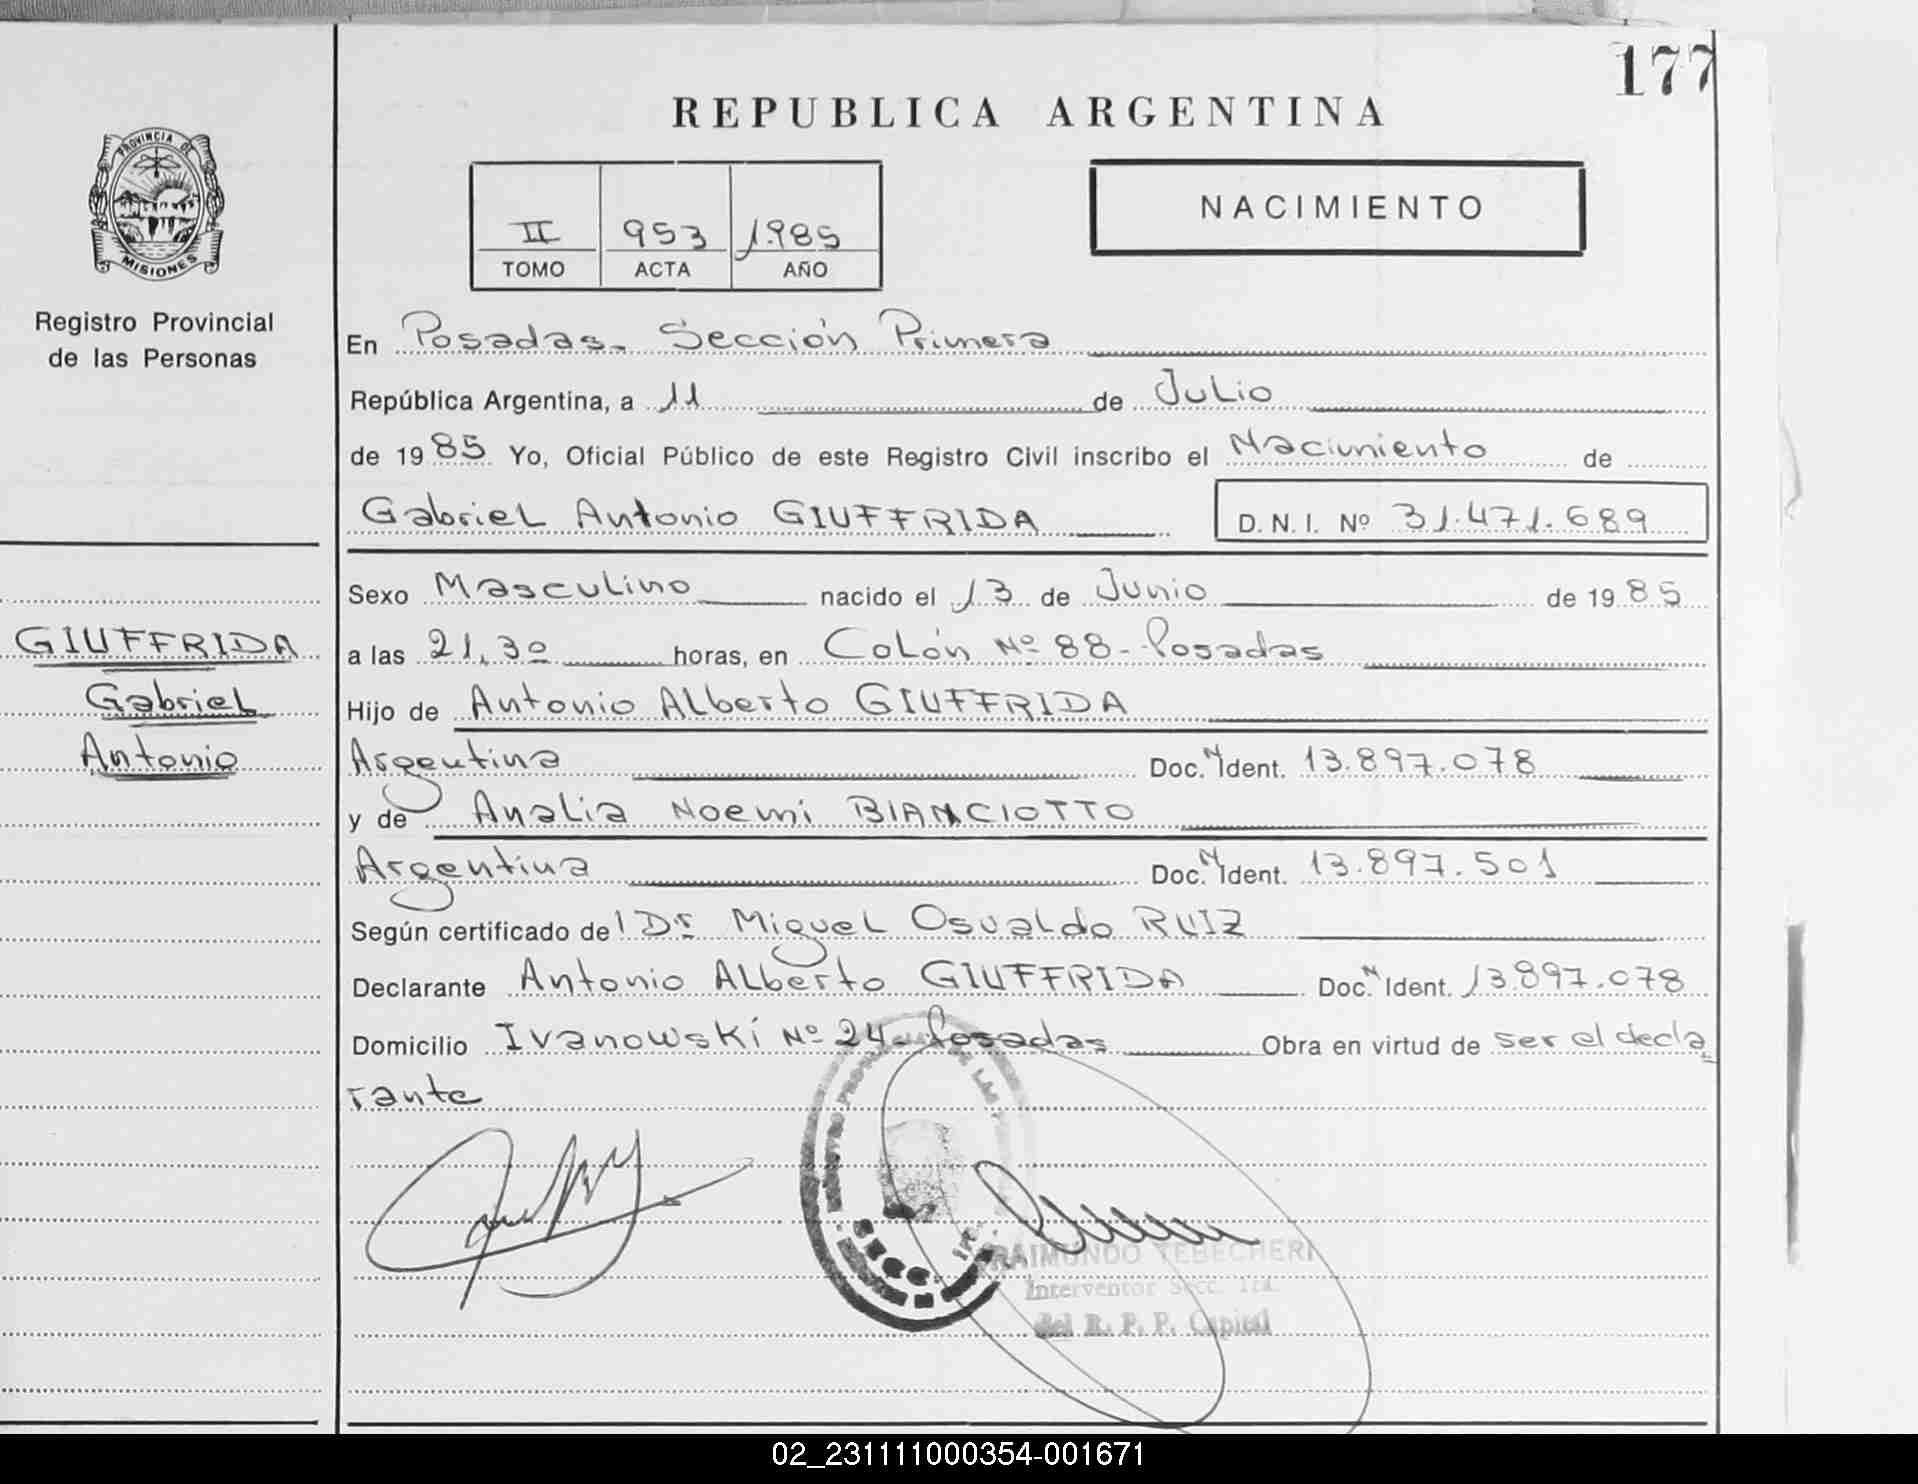 177
REPUBLICA ARGENTINA
PROVINCIA DE
MISIONES
Registro Provincial
de las Personas
II 953 1.985
TOMO ACTA AÑO
NACIMIENTO
En Posadas. Sección Primera
República Argentina, a 11 de Julio
de 1985 Yo, Oficial Público de este Registro Civil inscribo el Nacimiento de
Gabriel Antonio GIUFFRIDA D.N.I. Nº 31.471.689
Sexo Masculino nacido el 13 de Junio de 1985
GIUFFRIDA
Gabriel
Antonio
a las 21,30 horas, en Colón Nº 88- Posadas
Hijo de Antonio Alberto GIUFFRIDA
Argentina Doc. N Ident. 13.897.078
y de Analia Noemi BIANCIOTTO
Argentina Doc. N Ident. 13.897.501
Según certificado del Dr Miguel Osvaldo RUIZ
Declarante Antonio Alberto GIUFFRIDA Doc. N Ident. 13.897.078
Domicilio Ivanowski Nº 24- Posadas Obra en virtud de ser el decla
rante
REGISTRO DE LAS
SECC. 1ra.
RAIMUNDO TEBECHERI
Interventor Secc. 1ra.
del R. P. P. Capital
02_231111000354-001671